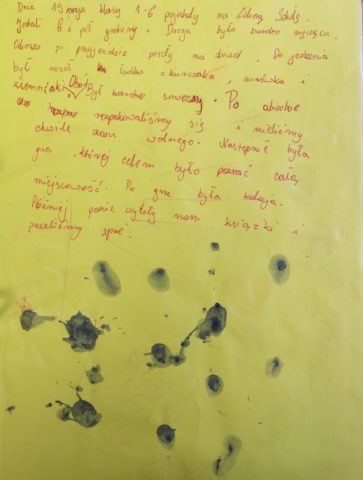 Dnia 19 maja klasy 1-6 pojechały na Zieloną Szkołę.
Jechali 6 i pół godziny. Droga była bardzo męcząca.
Obrazu po przyjeździe poszły na obiad. Do jedzenia
był rosół kurczaka, surówka i
ziemniaki. Obiad był bardzo smaczny. Po obiedzie
rozpakowaliśmy się i mieliśmy
chwile czasu wolnego. Następnie była
gra, której celem było poznać całą
miejscowość. Po grze była kolacja.
Później panie czytały nam książki i
poszliśmy spać.